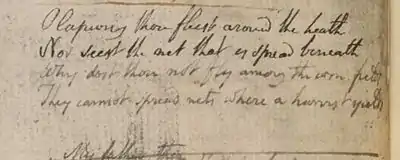 O lapwing thou fliest around the heath
Nor seest the net that is spread beneath
Why dost thou not fly among the corn fields
They cannot spread nets where a harvest yields